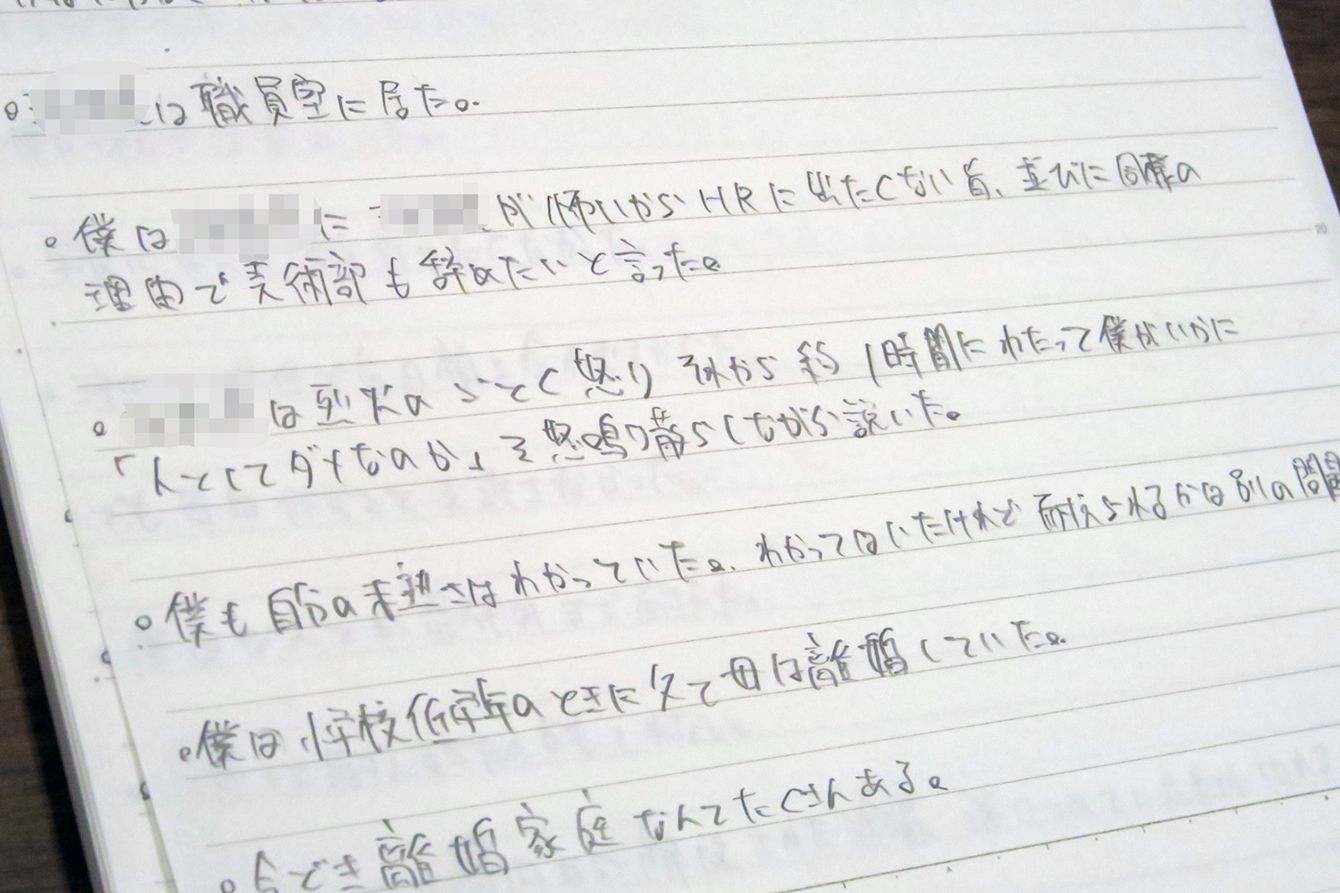 は職員室に居た。
。僕は に が怖いからHRに出たくない旨、並びに同様の
理由で美術部も辞めたいと言った。
。 は烈火のごとく怒り それから約1時間にわたって僕がいかに
「人としてダメなのか」を怒鳴り散らしながら説いた。
。僕も自分の未熟さはわかっていた。わかってはいたけれど耐えられるかは別の問題
。僕は小学校低学年のときに父と母は離婚していた。
。今どき離婚家庭なんてたくさんある。